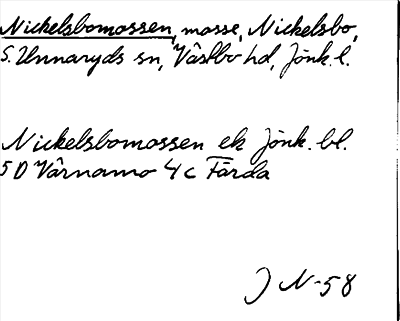 Nickelsbomossen, mosse, Nickelsbo,
S. Unnaryds sn, Västbo hd, Jönk. l.
Nickelsbomossen ek Jönk. bl.
5 D Värnamo 4 c Färda
J N-58